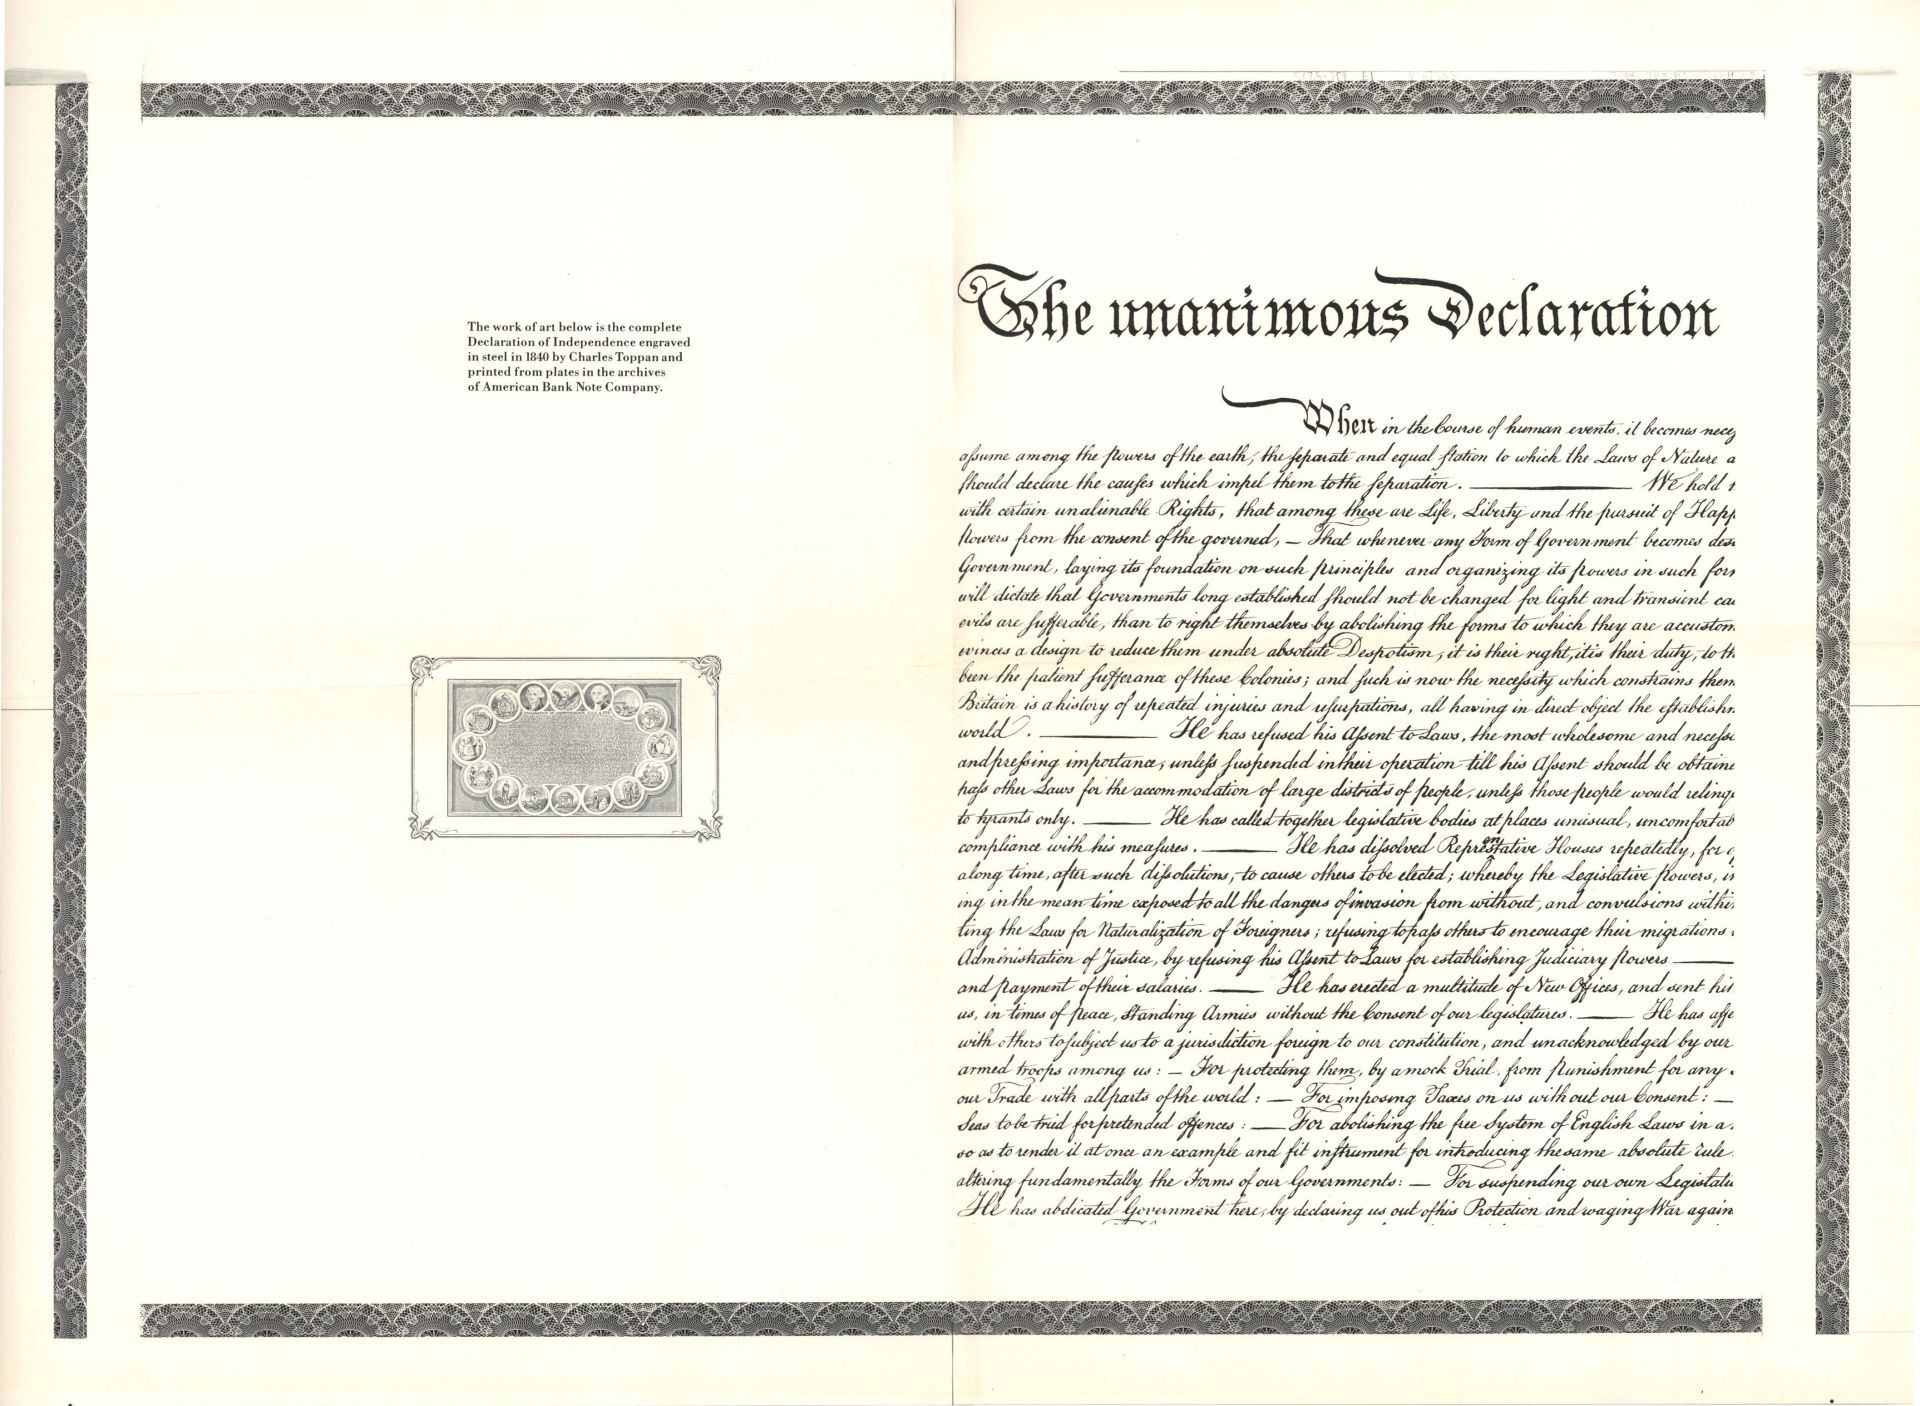 The work of art below is the complete
Declaration of Independence engraved
in steel in 1840 by Charles Toppan and
printed from plates in the archives
of American Bank Note Company.
The unanimous Declaration
When in the Course of human events, it becomes nece
assume among the powers of the earth, the separate and equal station to which the Laws of Nature a
should declare the causes which impel them to the separation. ——— We hold t
with certain unalienable Rights, that among these are Life, Liberty and the pursuit of Happ
powers from the consent of the governed, — That whenever any Form of Government becomes des
Government, laying its foundation on such principles and organizing its powers in such for
will dictate that Governments long established should not be changed for light and transient ca
evils are sufferable, than to right themselves by abolishing the forms to which they are accustom
evinces a design to reduce them under absolute Despotism, it is their right, it is their duty, to th
been the patient sufferance of these Colonies; and such is now the necessity which constrains them
Britain is a history of repeated injuries and usurpations, all having in direct object the establish
world. ——— He has refused his Assent to Laws, the most wholesome and necess
and pressing importance, unless suspended in their operation till his Assent should be obtaine
pass other Laws for the accommodation of large districts of people, unless those people would relinq
to tyrants only. ——— He has called together legislative bodies at places unusual, uncomfortab
compliance with his measures. ——— He has dissolved Representative Houses repeatedly, for o
along time, after such dissolutions, to cause others to be elected; whereby the Legislative powers, in
ing in the mean time exposed to all the dangers of invasion from without, and convulsions withi
ting the Laws for Naturalization of Foreigners; refusing to pass others to encourage their migrations
Administration of Justice, by refusing his Assent to Laws for establishing Judiciary powers ———
and payment of their salaries. ——— He has erected a multitude of New Offices, and sent hi
us, in times of peace, Standing Armies without the Consent of our legislatures. ——— He has affe
with others to subject us to a jurisdiction foreign to our constitution, and unacknowledged by our
armed troops among us: — For protecting them, by a mock Trial, from punishment for any
our Trade with all parts of the world: — For imposing Taxes on us without our Consent: —
Seas to be tried for pretended offences: — For abolishing the free System of English Laws in a
so as to render it at once an example and fit instrument for introducing the same absolute rule
altering fundamentally the Forms of our Governments: — For suspending our own Legislatu
He has abdicated Government here, by declaring us out of his Protection and waging War again